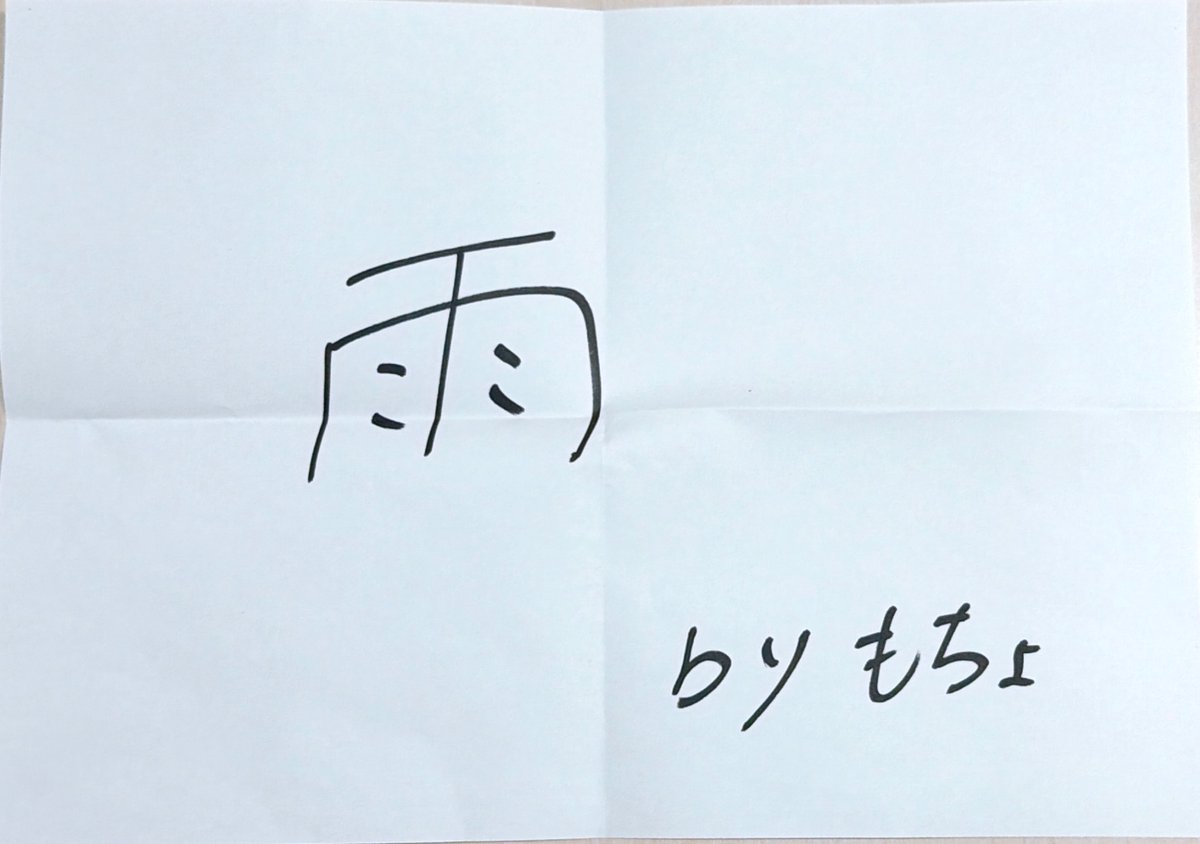 雨
by もちょ